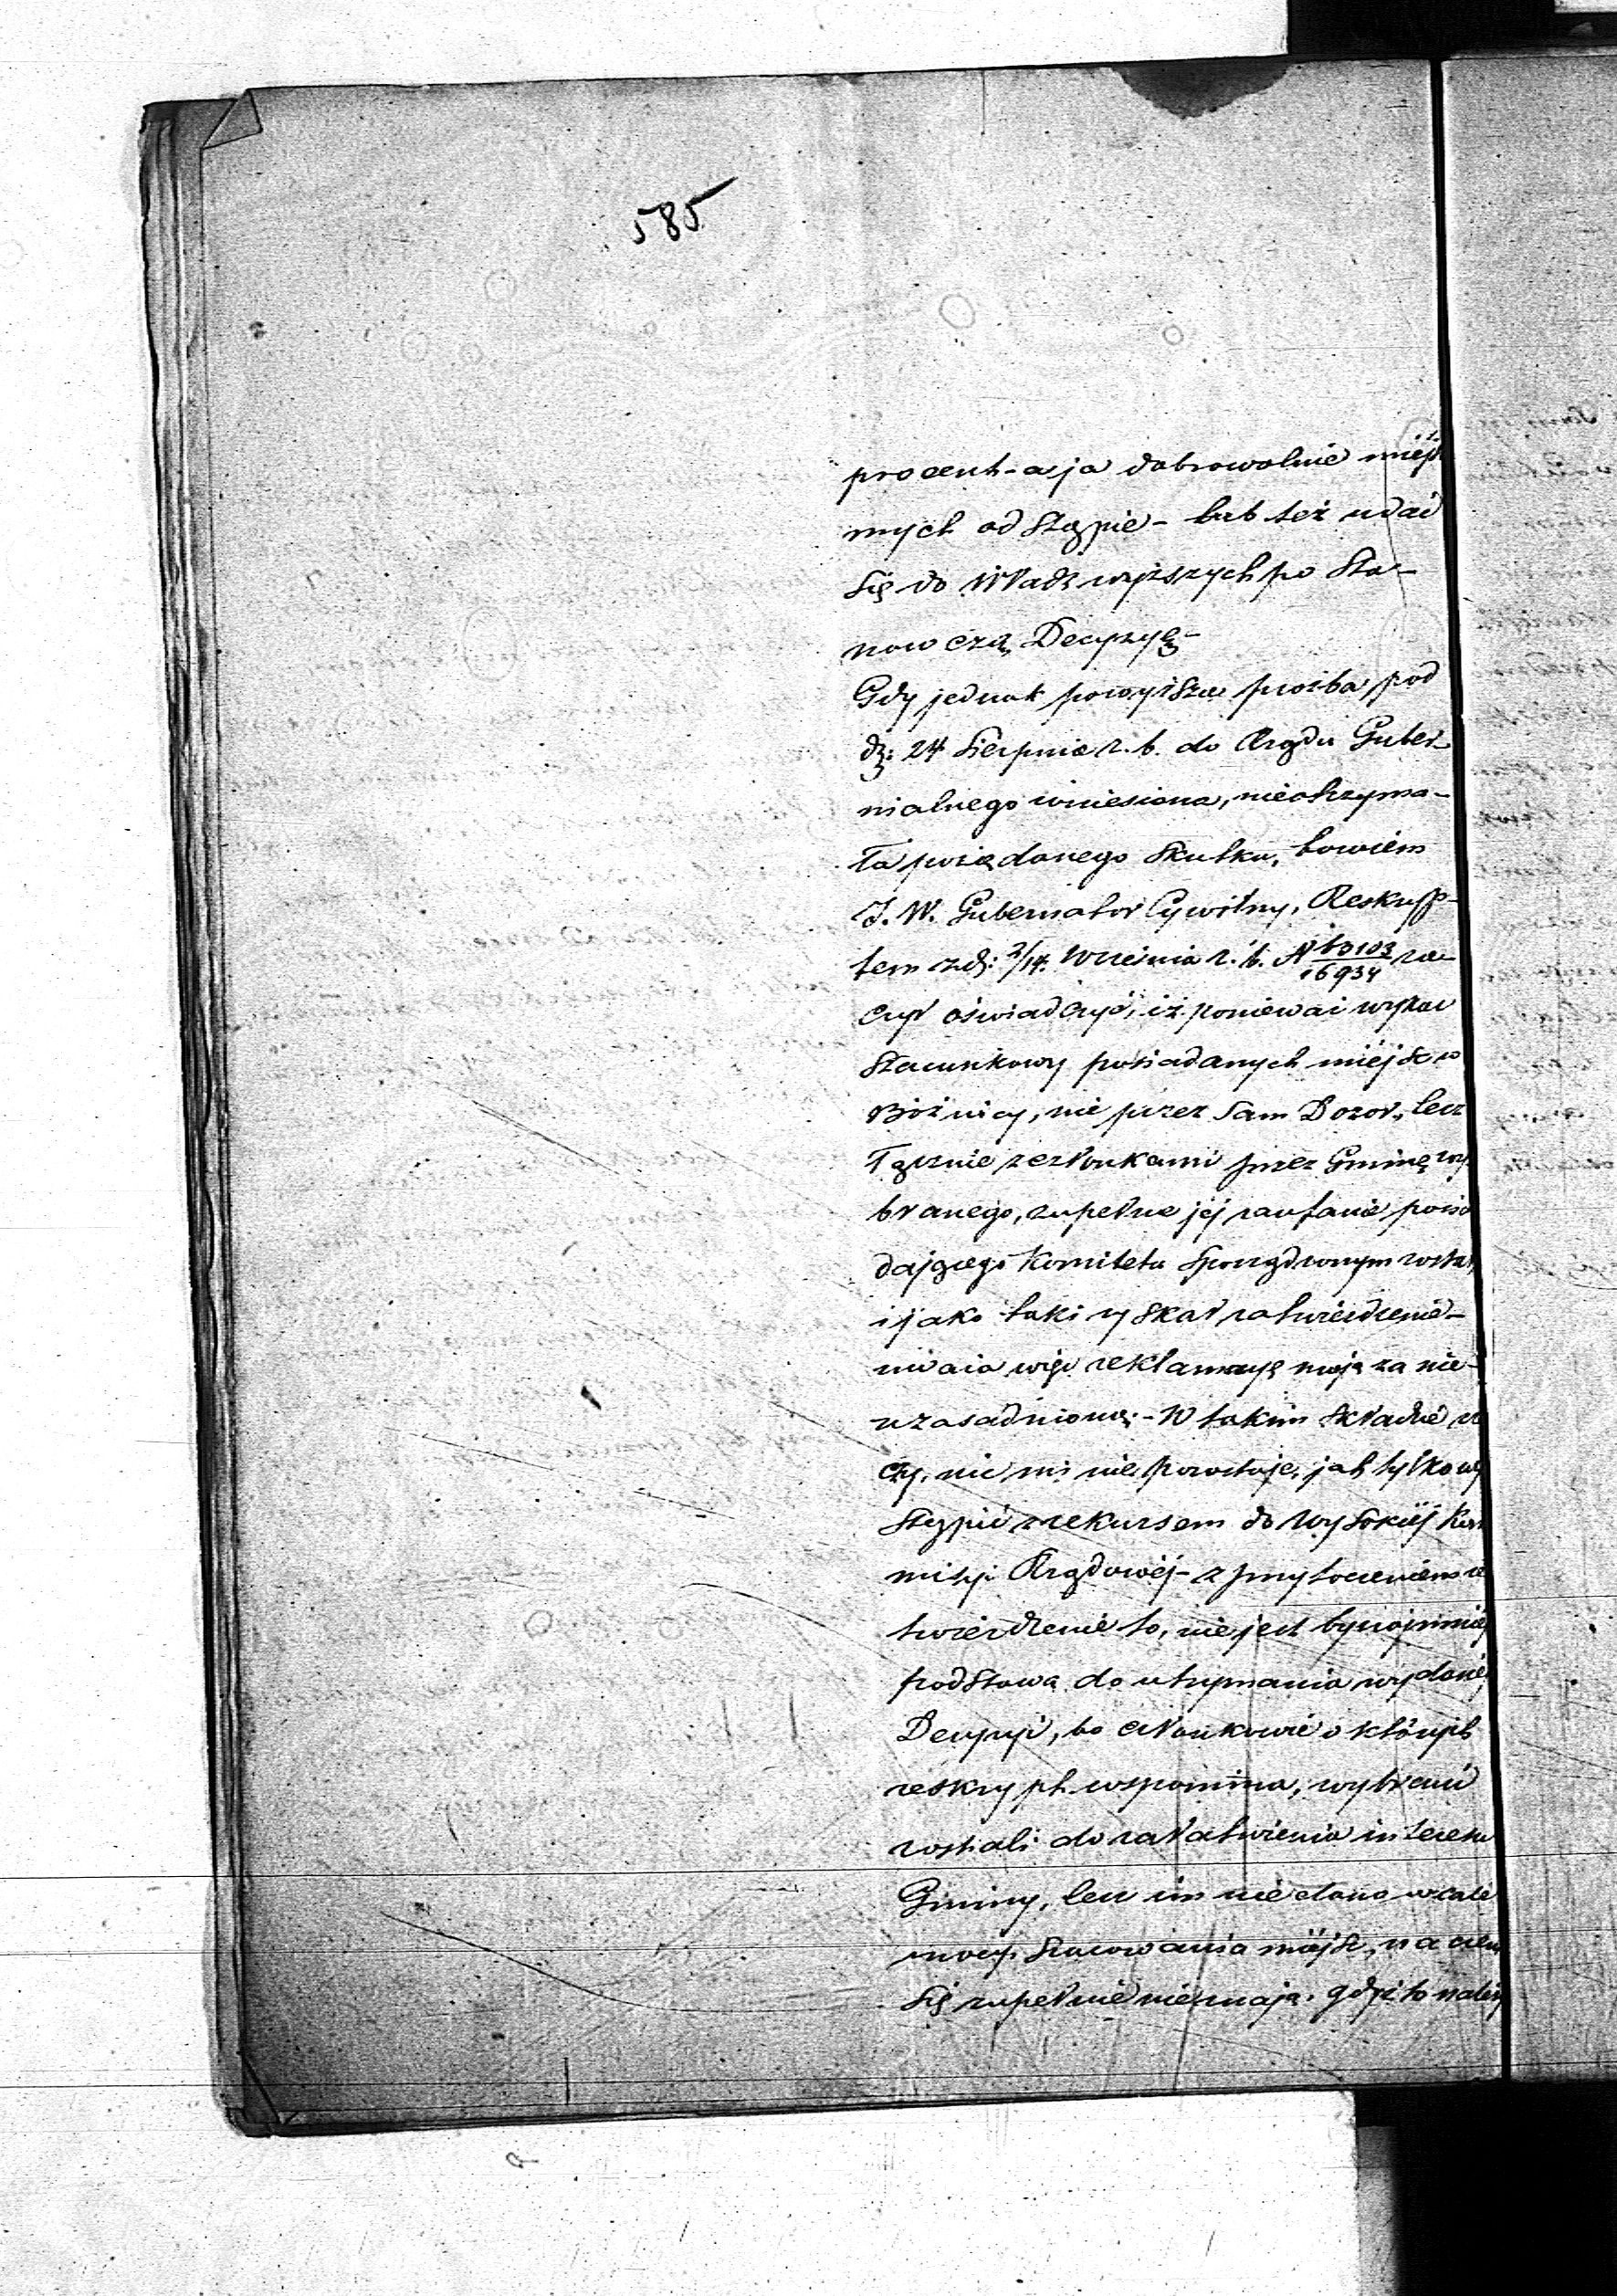 585
procent - a ja dobrowolnie miejsc
mych odstąpię - lub też udać
się do Władz wyższych po sta-
nowczą Decyzyę -
Gdy jednak powyższa prośba pod
dz: 24 Sierpnia r. b. do Rządu Guber-
nialnego wniesiona, nieotrzyma-
ła pożądanego skutku, bowiem
J. W. Gubernator Cywilny, Reskryp-
tem z d: 2/14. Września r. b. N 60103/16934 ra-
czył oświadczyć, iż ponieważ wykaz
szacunkowy posiadanych miejsc w
Bóżnicy, nie przez sam Dozór, lecz
łącznie z członkami przez Gminę wy
branego, zupełne jej zaufanie posia
dającego Komitetu sporządzonym został
i jako taki zyskał zatwierdzenie -
uważa więc reklamacyę moją za nie-
uzasadnioną. - W takim składzie rze
czy, nic mi nie pozostaje, jak tylko wy
stąpić z rekursem do Wysokiéj Kom
misyi Rządowéj - z przytoczeniem że
twierdzenie to, nie jest bynajmniej
podstawą do utrzymania wydanéj
Decyzyi, bo członkowie o których
reskrypt wspomina, wybrani
zostali do załatwienia interesu
Gminy, lecz im nie dano wcale
mocy szacowania miejsc, na czem
się zupełnie nieznają, gdyż to należy